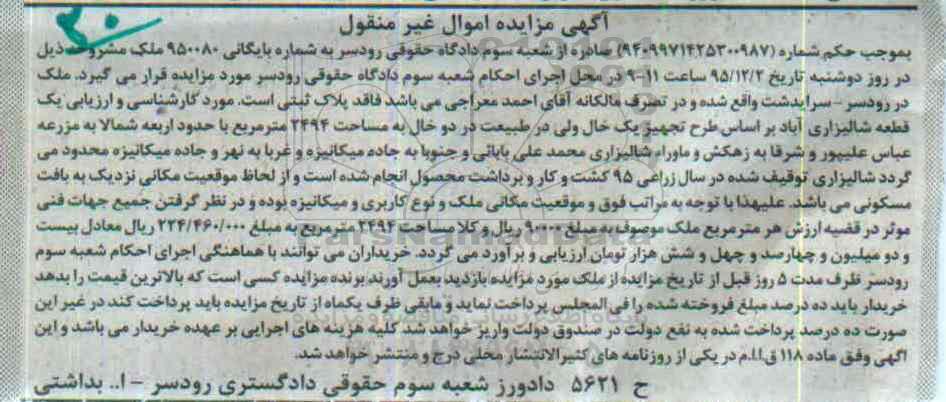 آگهی مزایده اموال غیر منقول
بموجب حکم شماره (۹۴۰۹۹۷۱۴۲۵۳۰۰۹۸۷) صادره از شعبه سوم دادگاه حقوقی رودسر به شماره بایگانی ۹۵۰۰۸۰ ملک مشروحه ذیل
در روز دوشنبه تاریخ ۹۵/۱۲/۲ ساعت ۱۱-۹ در محل اجرای احکام شعبه سوم دادگاه حقوقی رودسر مورد مزایده قرار می گیرد. ملک
در رودسر - سرایدشت واقع شده و در تصرف مالکانه آقای احمد معراجی می باشد فاقد پلاک ثبتی است. مورد کارشناسی و ارزیابی یک
قطعه شالیزاری آباد بر اساس طرح تجهیز یک خال ولی در طبیعت در دو خال به مساحت ۲۴۹۴ مترمربع با حدود اربعه شمالا به مزرعه
عباس علیپور و شرقا به زهکش و ماوراء شالیزاری محمد علی بابائی و جنوبا به جاده میکانیزه و غربا به نهر و جاده میکانیزه محدود می
گردد شالیزاری توقیف شده در سال زراعی ۹۵ کشت و کار و برداشت محصول انجام شده است و از لحاظ موقعیت مکانی نزدیک به بافت
مسکونی می باشد. علیهذا با توجه به مراتب فوق و موقعیت مکانی ملک و نوع کاربری و میکانیزه بوده و در نظر گرفتن جمیع جهات فنی
موثر در قضیه ارزش هر مترمربع ملک موصوف به مبلغ ۹۰۰۰۰ ریال و کلا مساحت ۲۴۹۴ مترمربع به مبلغ ۲۲۴/۴۶۰/۰۰۰ ریال معادل بیست
و دو میلیون و چهارصد و چهل و شش هزار تومان ارزیابی و برآورد می گردد. خریداران می توانند با هماهنگی اجرای احکام شعبه سوم
رودسر ظرف مدت ۵ روز قبل از تاریخ مزایده از ملک مورد مزایده بازدید بعمل آورند برنده مزایده کسی است که بالاترین قیمت را بدهد
خریدار باید ده درصد مبلغ فروخته شده را فی المجلس پرداخت نماید و مابقی ظرف یکماه از تاریخ مزایده باید پرداخت کند در غیر این
صورت ده درصد پرداخت شده به نفع دولت در صندوق دولت واریز خواهد شد کلیه هزینه های اجرایی بر عهده خریدار می باشد و این
آگهی وفق ماده ۱۱۸ ق.ا.ا.م در یکی از روزنامه های کثیرالانتشار محلی درج و منتشر خواهد شد.
ح ۵۶۲۱ دادورز شعبه سوم حقوقی دادگستری رودسر - ا.. بداشتی